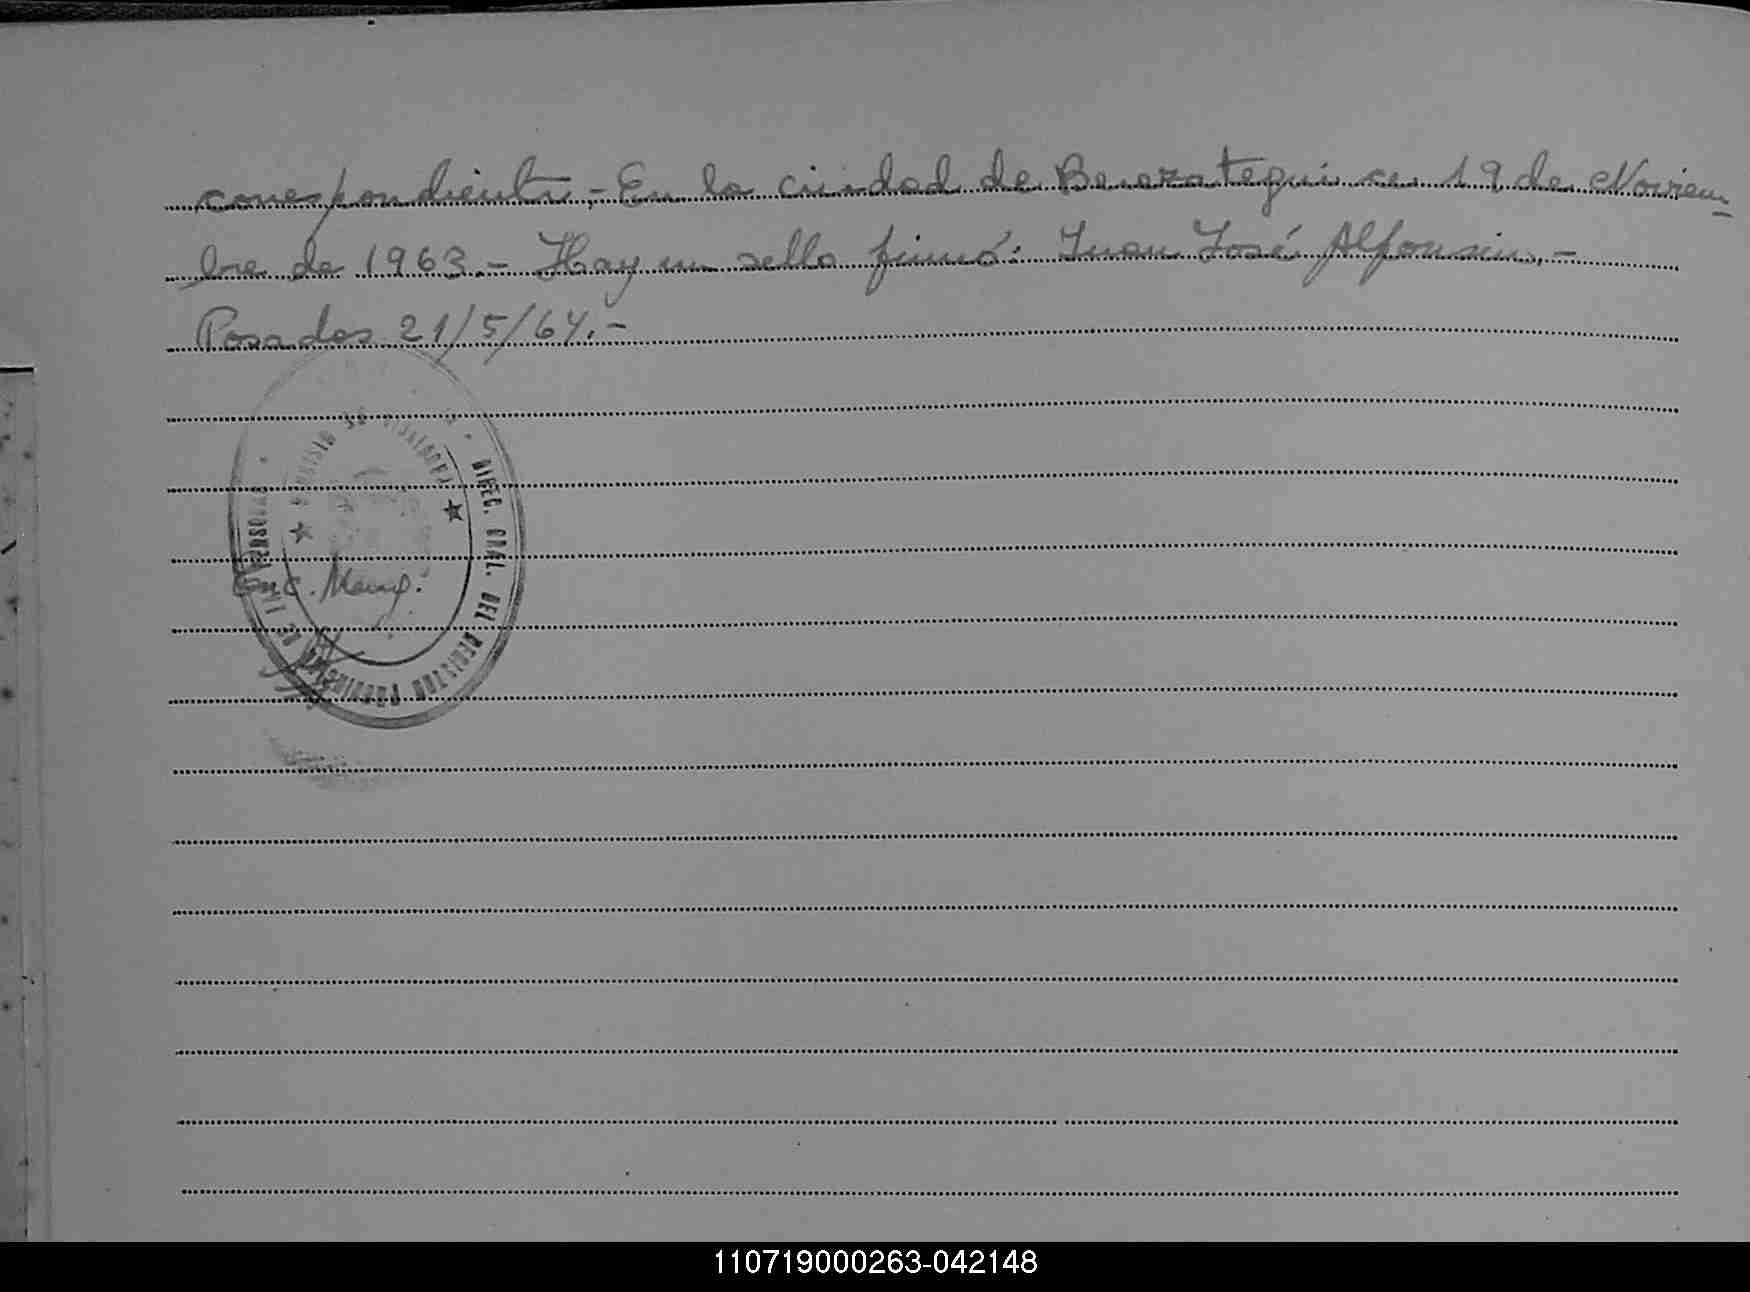 correspondiente,- En la ciudad de Berazategui a 19 de Noviem
bre de 1963.- Hay un sello firmó: Juan José Alfonsin,-
Posadas 21/5/64.-
DIREC. GRAL. DEL REGISTRO PROVINCIAL DE LAS PERSONAS
Enc.
110719000263-042148